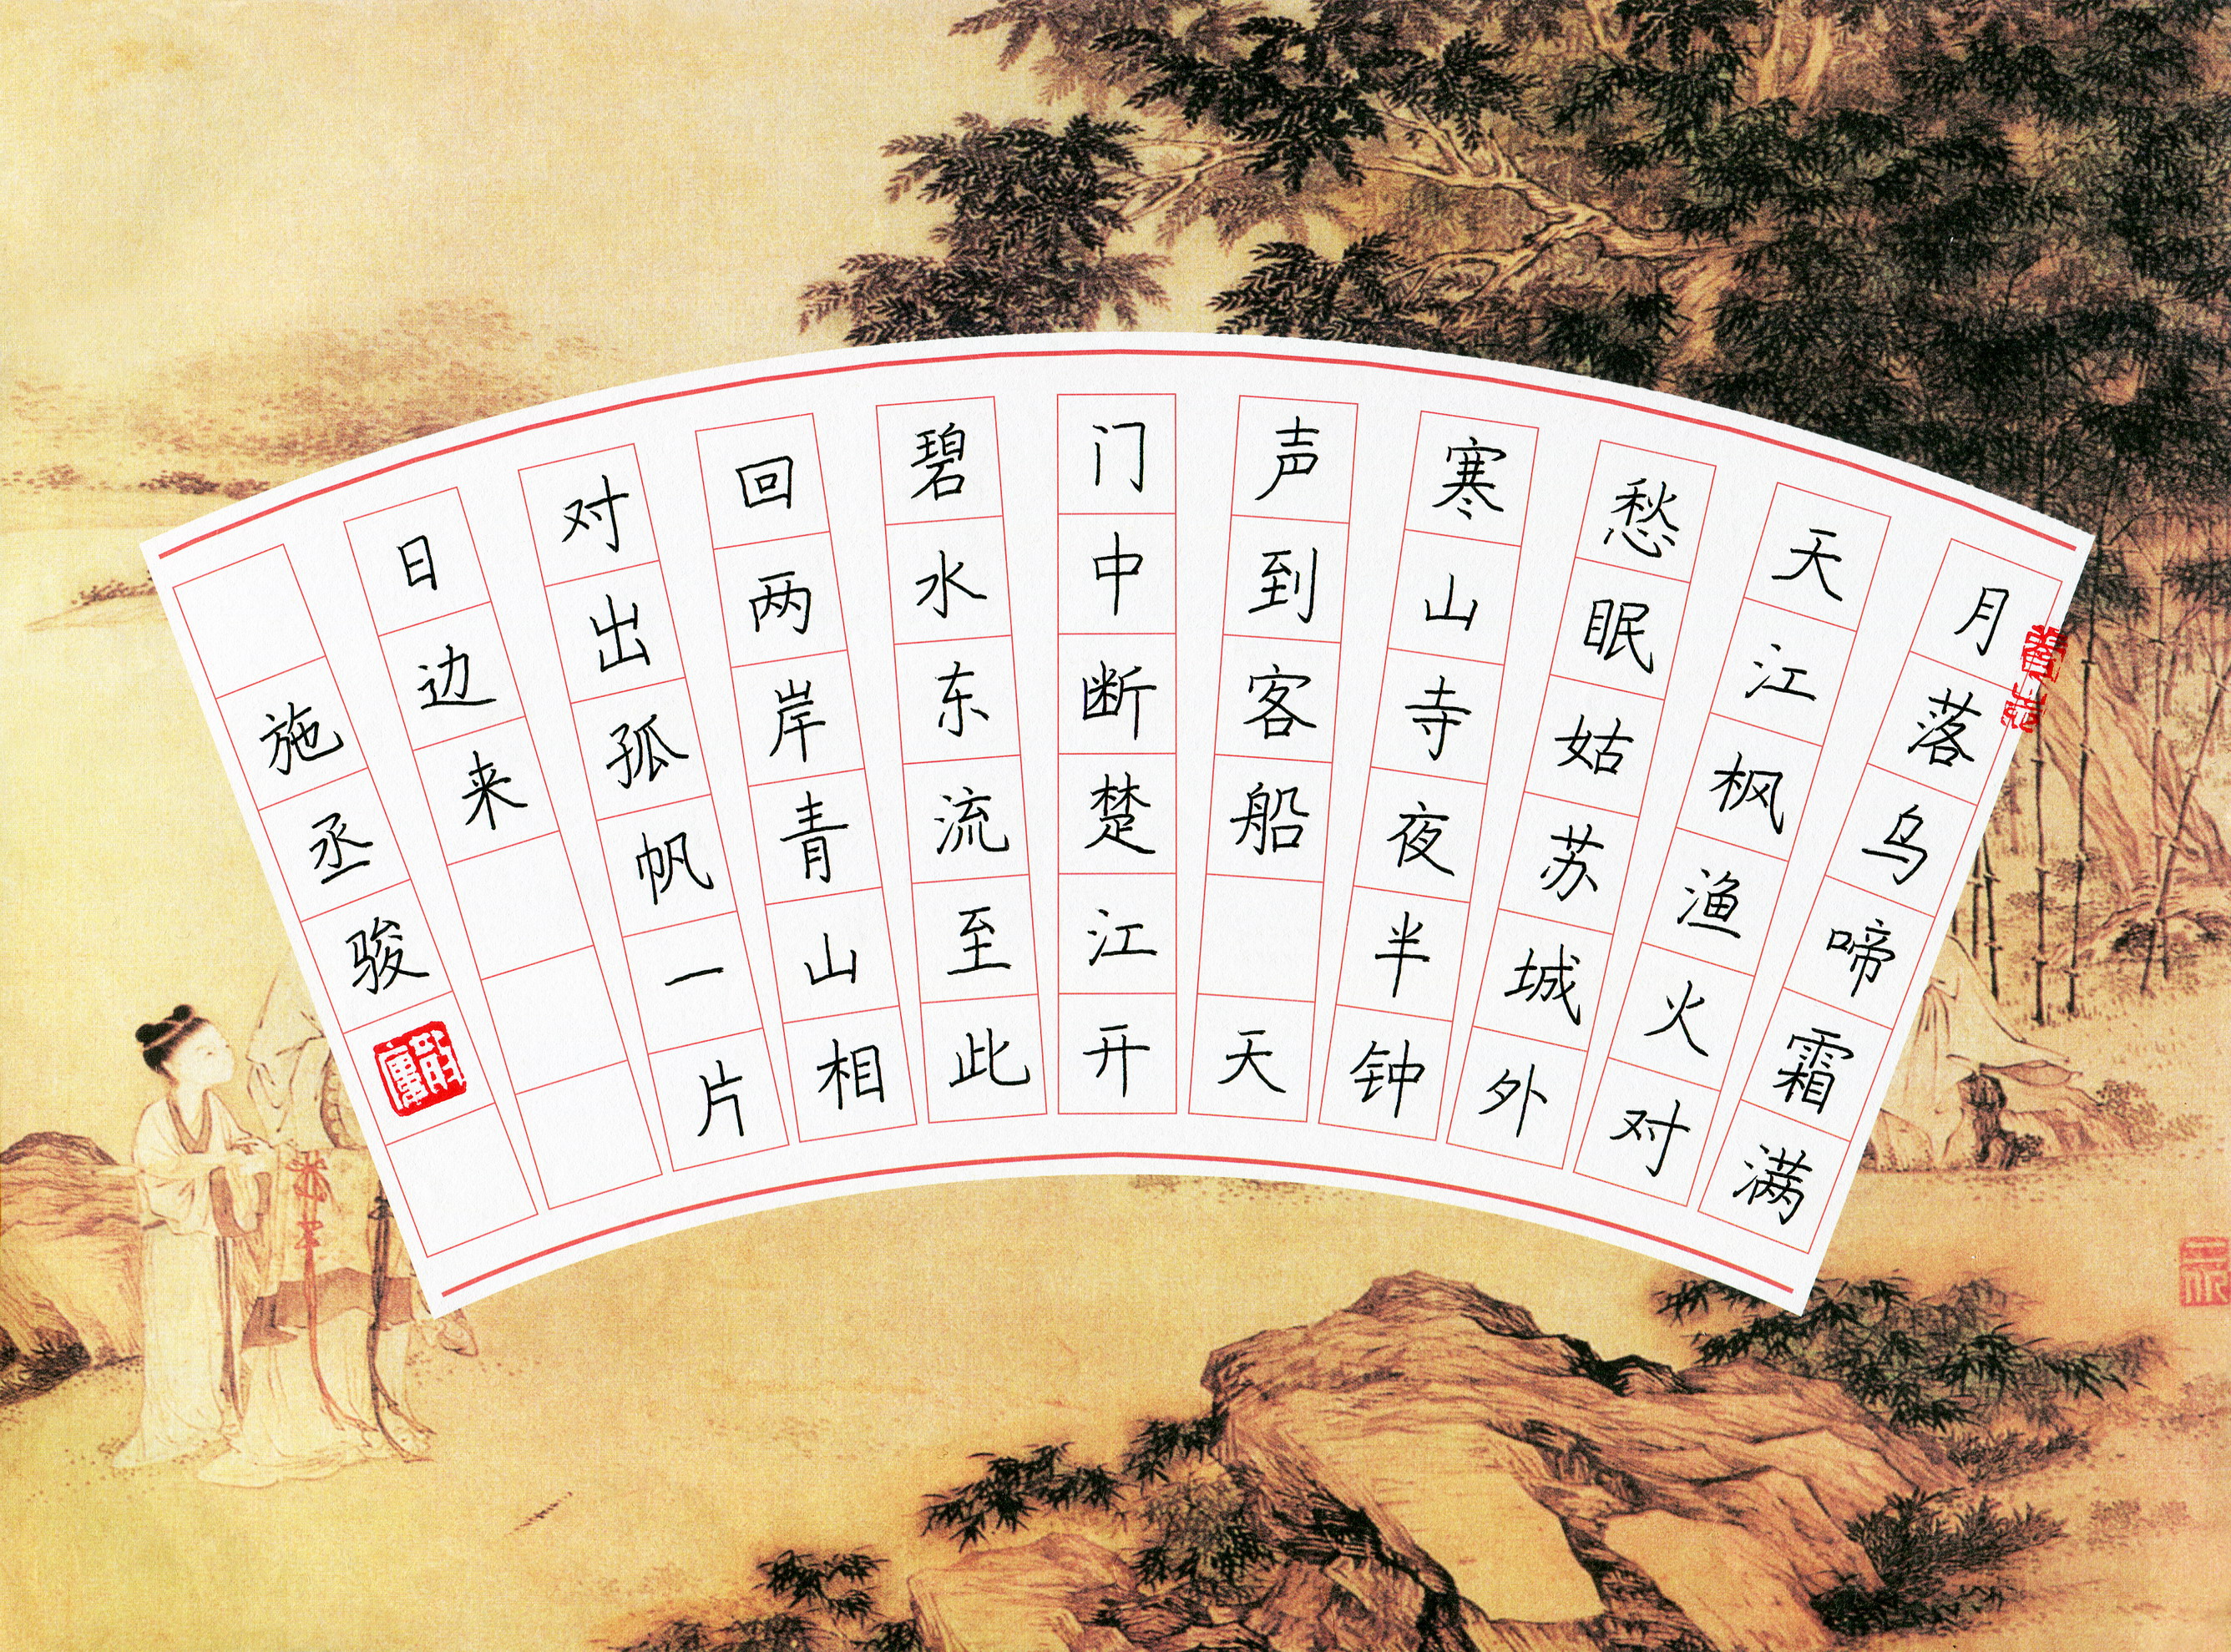 月落乌啼霜满
天江枫渔火对
愁眠姑苏城外
寒山寺夜半钟
声到客船 天
门中断楚江开
碧水东流至此
回两岸青山相
对出孤帆一片
日边来
施丞骏